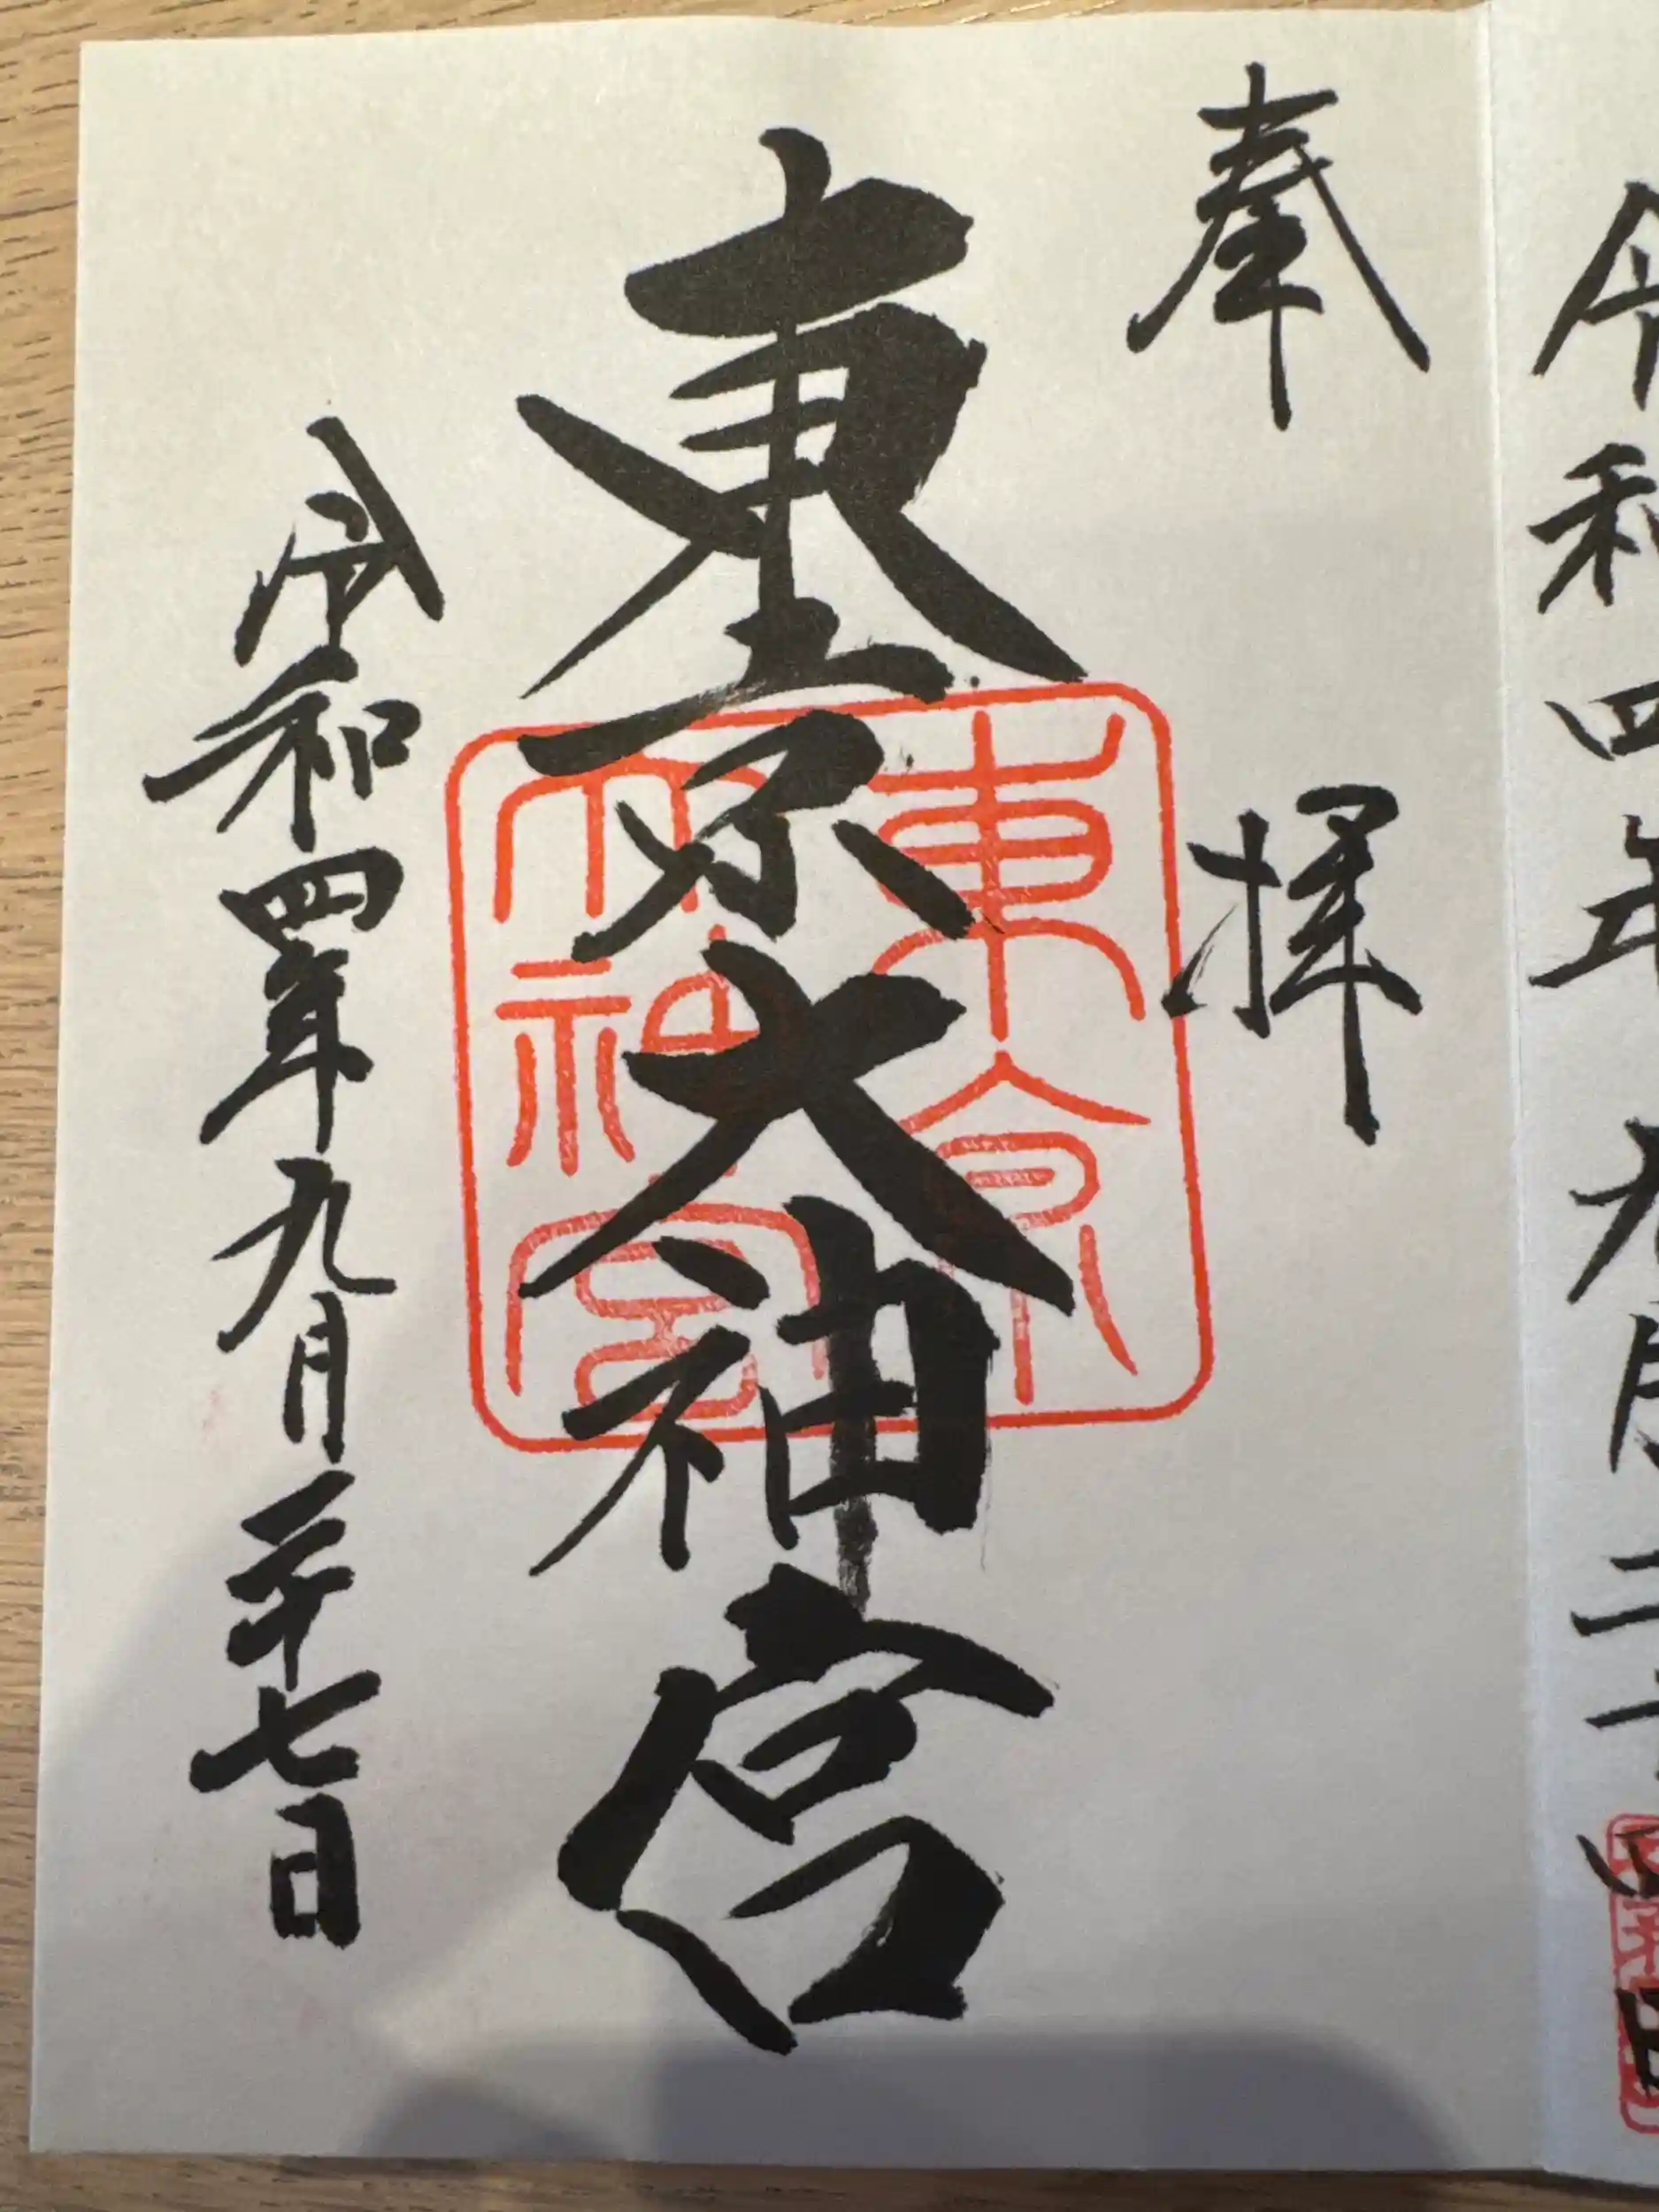 令和四年九月二十四日
奉拝
東京大神宮
東京大神宮
令和四年九月二十七日